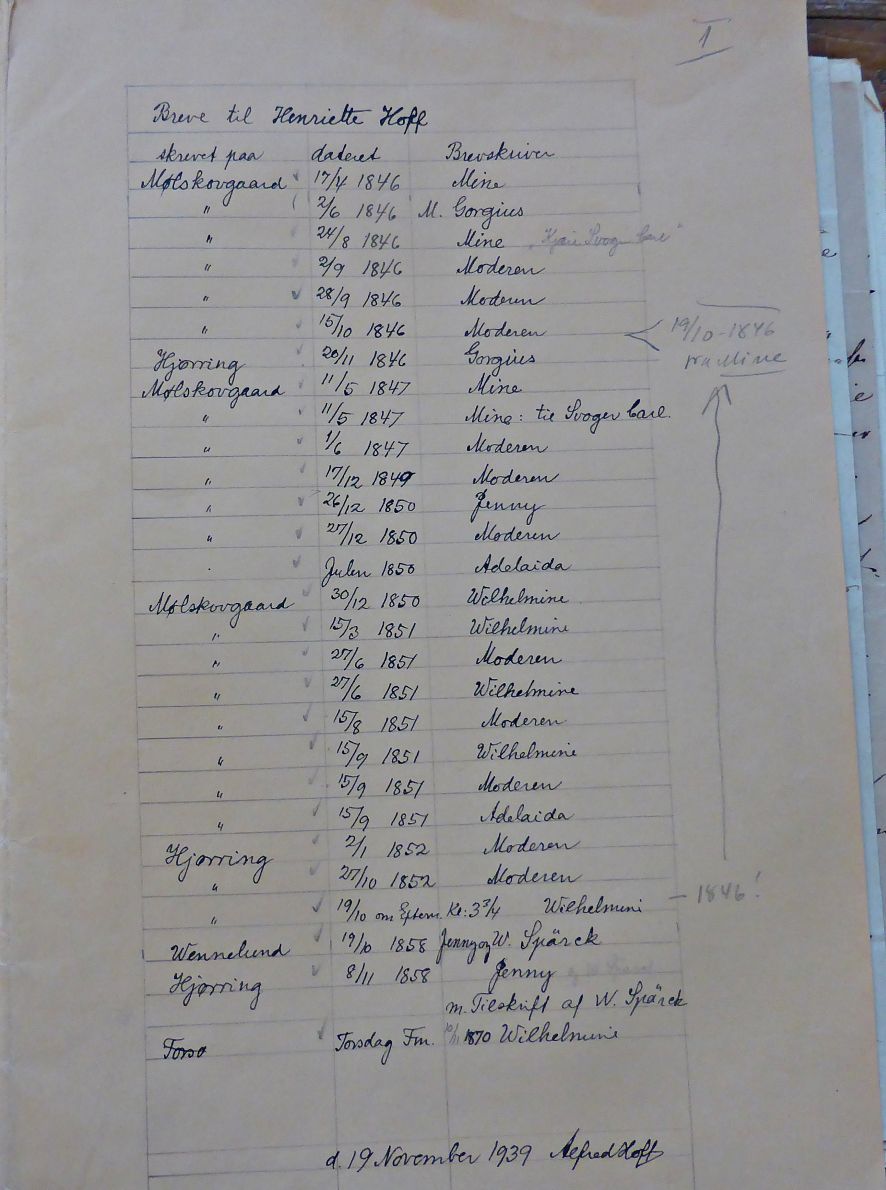 I
Breve til Henriette Hoff
skrevet paa dateret Brevskriver
Mølskovgaard 17/4 1846 Mine
" 2/6 1846 M. Gorgius
" 24/8 1846 Mine "Kjære Svoger Carl"
" 2/9 1846 Moderen
" 28/9 1846 Moderen
" 15/10 1846 Moderen
19/10-1846
fra Mine
Hjørring 20/11 1846 Gorgius
Mølskovgaard 11/5 1847 Mine
" 11/5 1847 Mine: til Svoger Carl.
" 1/6 1847 Moderen
" 17/12 1849 Moderen
" 26/12 1850 Jenny
" 27/12 1850 Moderen
Julen 1850 Adelaida
Mølskovgaard 30/12 1850 Wilhelmine
" 15/3 1851 Wilhelmine
" 27/6 1851 Moderen
" 27/6 1851 Wilhelmine
" 15/8 1851 Moderen
" 15/9 1851 Wilhelmine
" 15/9 1851 Moderen
" 15/9 1851 Adelaida
Hjørring 2/1 1852 Moderen
" 27/10 1852 Moderen
" 19/10 om Efterm. Kl: 3 3/4 Wilhelmine - 1846!
Wennelund 19/10 1858 Jenny og W. Spärck
Hjørring 8/11 1858 Jenny
m. Tilskrift af W. Spärck
Torsdag Fm. 1870 Wilhelmine
d. 19 November 1939 Alfred Hoff